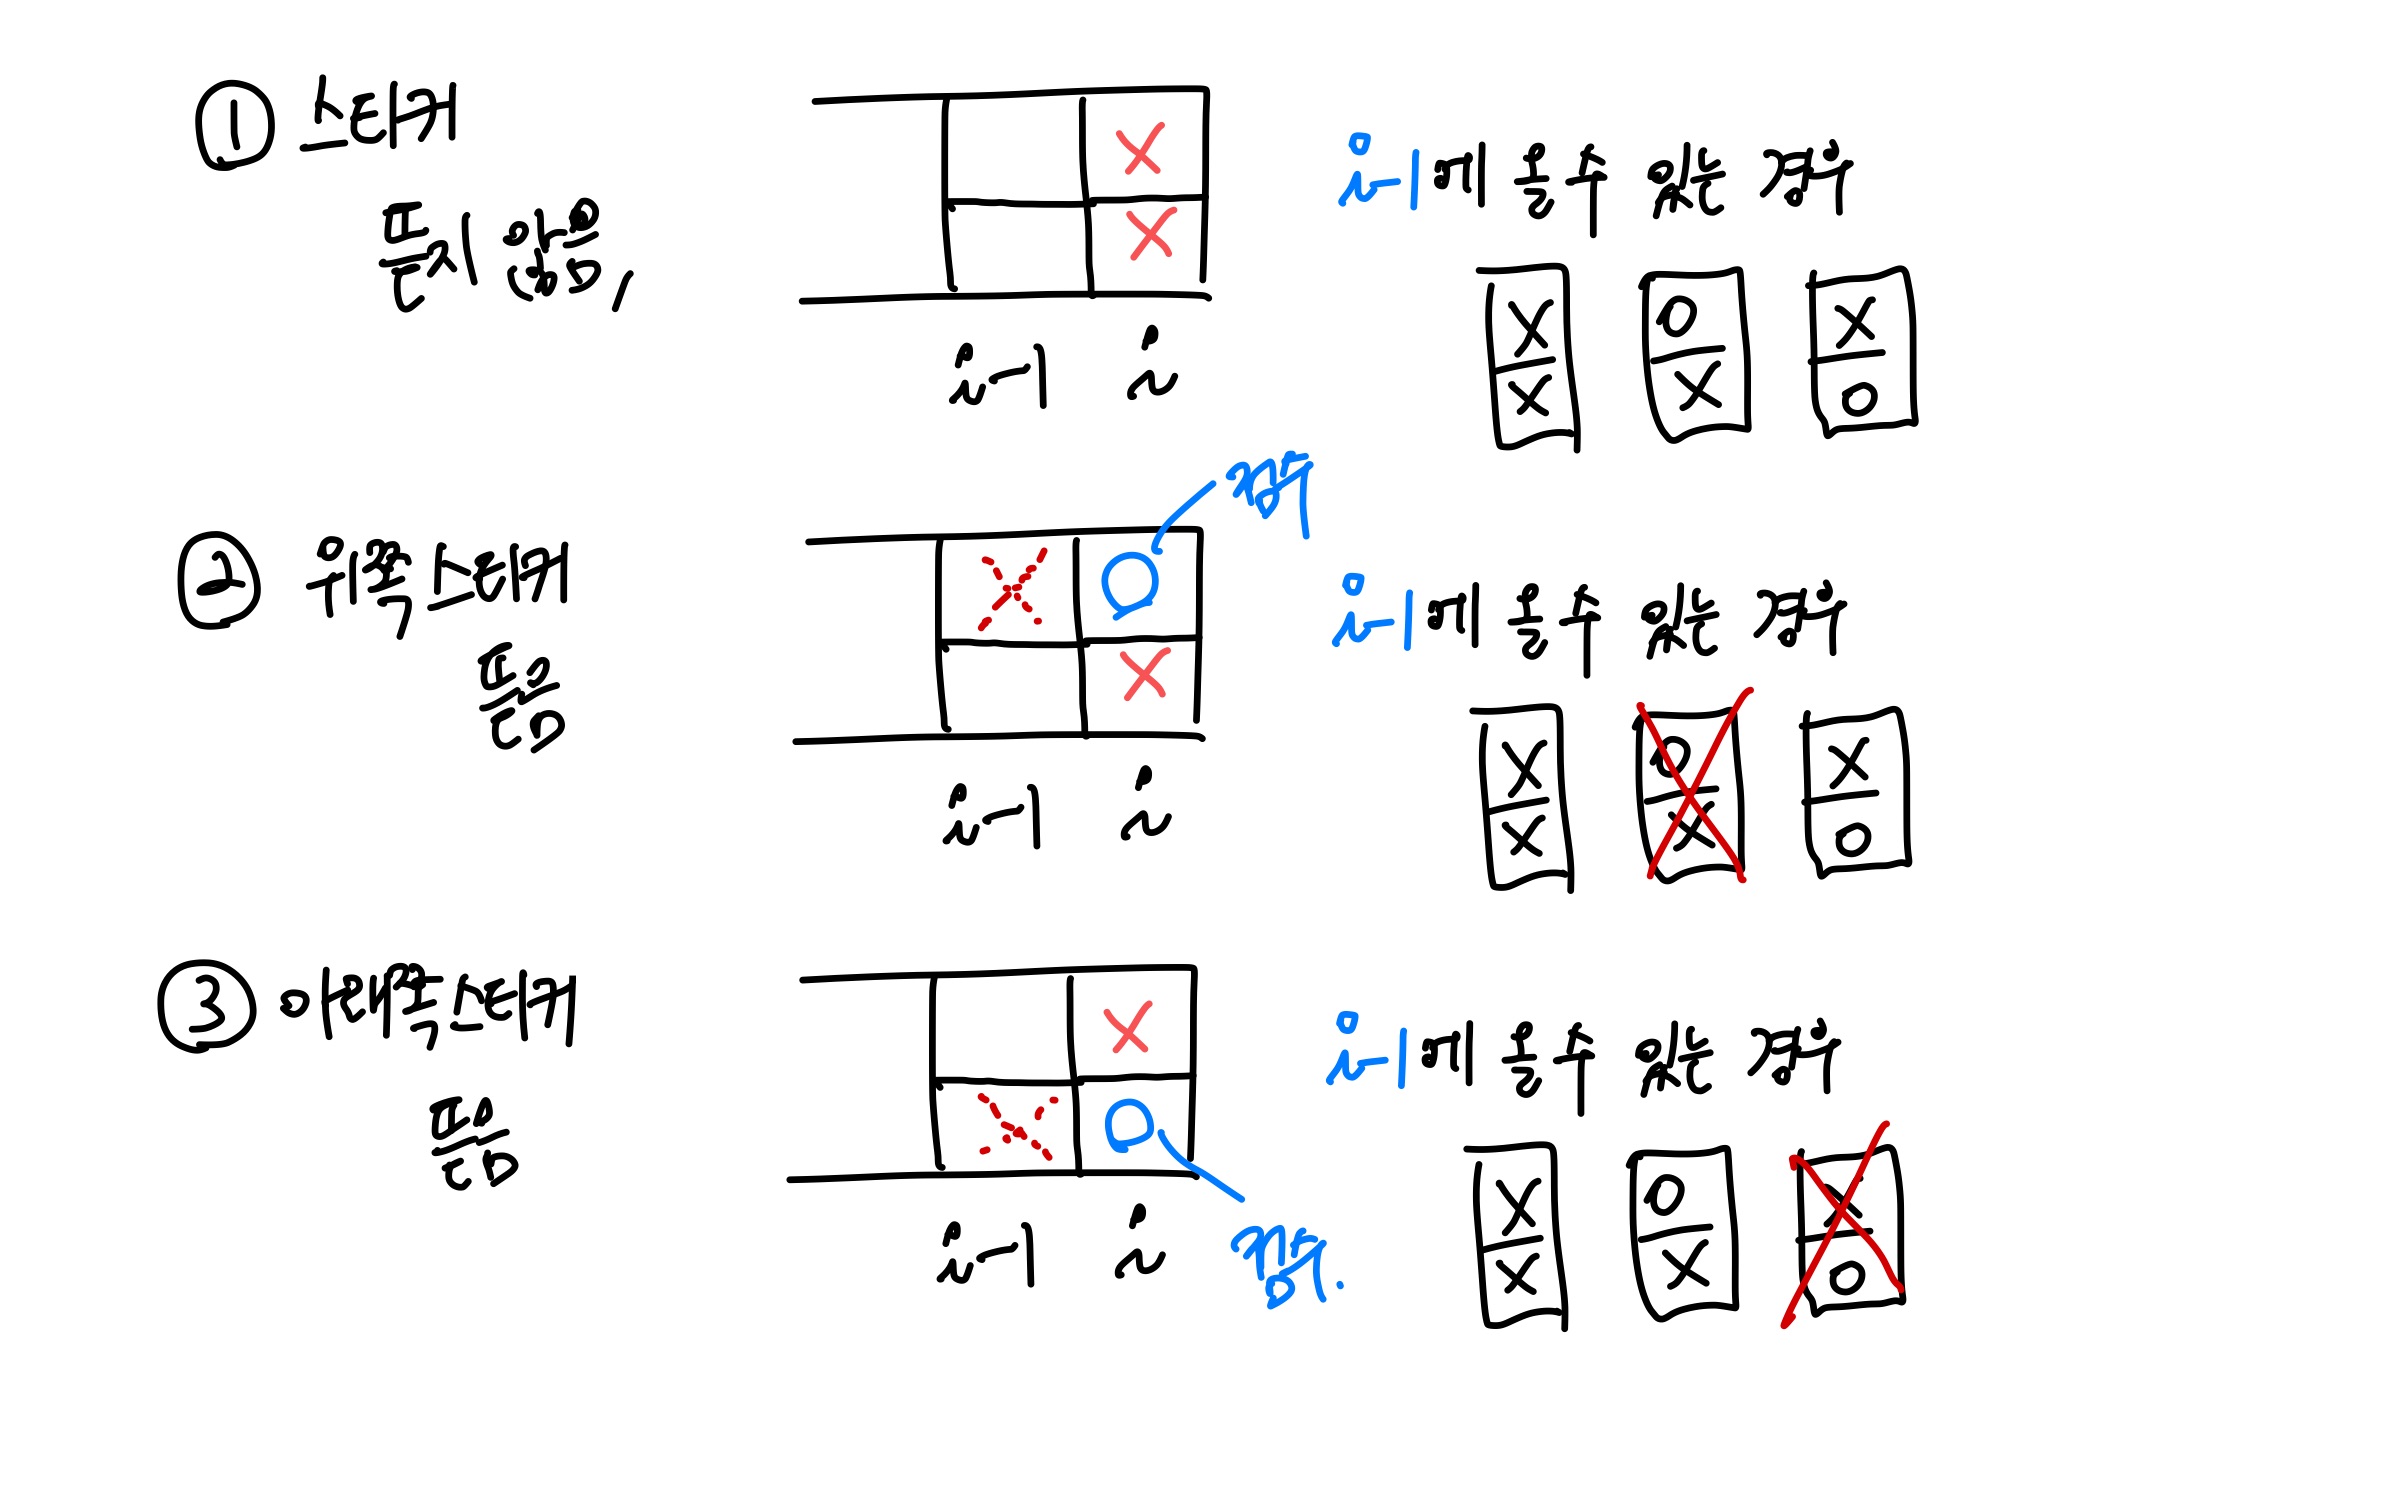 ① 스티커
뜯지 않음,
i-1 i
i-1에 올 수 있는 경우
X O X
X X O
② 위쪽 스티커
뜯음
i-1 i
i-1에 올 수 있는 경우
X O X
X X O
③ 아래쪽 스티커
뜯음
i-1 i
i-1에 올 수 있는 경우
X O X
X X O